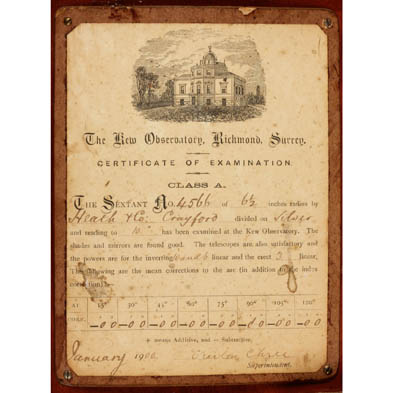 The Kew Observatory, Richmond, Surrey.
CERTIFICATE OF EXAMINATION.
CLASS A.
THE SEXTANT NO. 4566 of 6½ inches radius by
Heath & Co. Crayford divided on Silver
and reading to 10" has been examined at the Kew Observatory. The
shades and mirrors are found good. The telescopes are also satisfactory and
the powers are for the inverting and 6 linear and the erect 3 linear.
The following are the mean corrections to the arc (in addition to the index
correction):
AT 15° 30° 45° 60° 75° 90° 105° 120°
CORR. -0 0 -0 0 -0 0 -0 0 -0 0 -0 0 -0 0
+ means Additive, and — Subtractive.
January 1900
Superintendent.